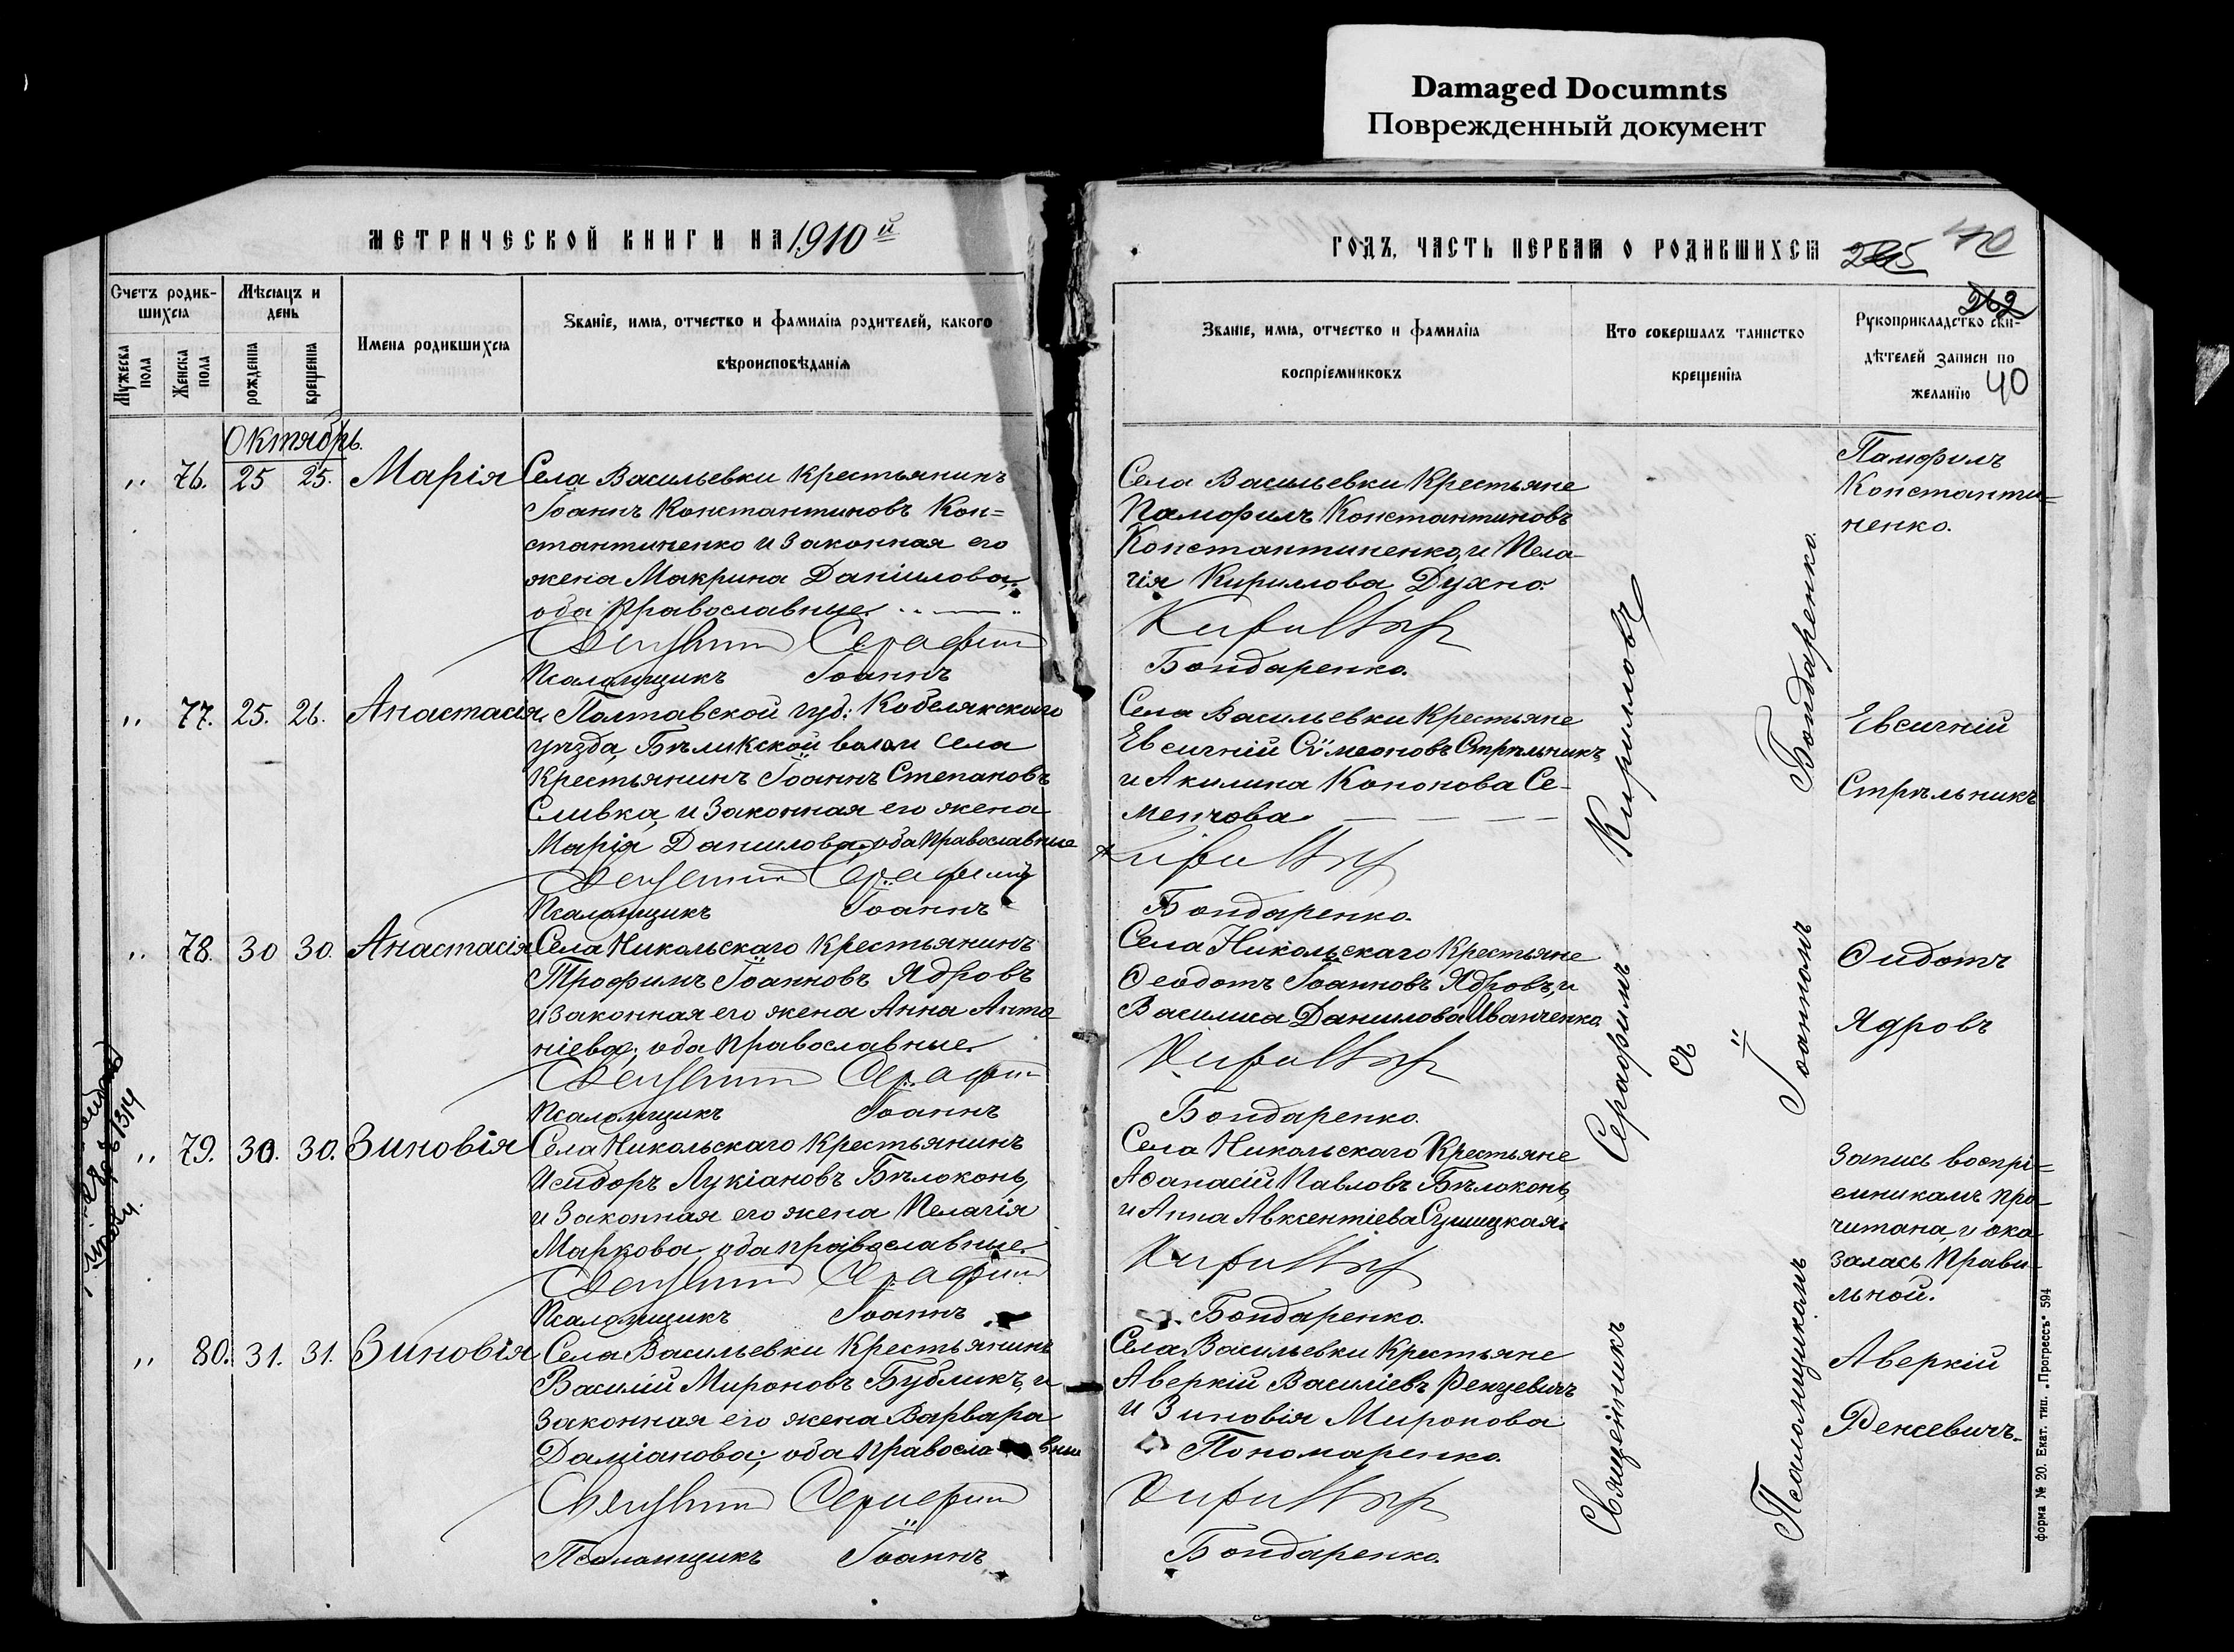 Damaged Documnts
Поврежденный документ
МЕТРИЧЕСКОЙ КНИГИ НА 1910й
Счетъ родив-
шихся
Мѣсяцъ и
день
Мужеска
пола
Женска
пола
рожденія
крещенія
Имена родившихся
Званіе, имя, отчество и фамилія родителей, какого
вѣроисповѣданія
Октябрь.
" 76. 25 25. Марія
Села Васильевки крестьянинъ
Іоаннъ Константиновъ Кон=
стантиненко и законная его
жена Макрина Даніилова,
оба православные.
Священникъ Серафим
Псаломщикъ Іоаннъ
" 77. 25. 26. Анастасія
Полтавской губ: Кобелякскаго
уѣзда, Бѣликской волости села
Крестьянинъ Іоаннъ Степановъ
Сливка, и законная его жена
Марія Данилова, оба православные
Священникъ Серафим
Псаломщикъ Іоаннъ
" 78. 30 30. Анастасія
Села Никольскаго крестьянинъ
Трофимъ Іоанновъ Ядровъ
и законная его жена Анна Анто
ніева; оба православные.
Священникъ Серафим
Псаломщикъ Іоаннъ
" 79. 30. 30. Зиновія
Села Никольскаго крестьянинъ
Исидоръ Лукіановъ Бѣлоконь,
и законная его жена Пелагія
Маркова, оба православные.
Священникъ Серафим
Псаломщикъ Іоаннъ
" 80. 31. 31. Зиновія
Села Васильевки Крестьянинъ
Василій Мироновъ Бубликъ, и
законная его жена Варвара
Даміанова; оба православные
Священникъ Серафим
Псаломщикъ Іоаннъ
1314
ГОДЪ, ЧАСТЬ ПЕРВАЯ О РОДИВШИХСЯ
262
40
Званіе, имя, отчество и фамилія
воспріемниковъ
Кто совершалъ таинство
крещенія
Рукоприкладство сви-
дѣтелей записи по
желанію
Села Васильевки Крестьяне
Памфилъ Константиновъ
Константиненко, и Пела-
гія Кириллова Духно.
Кирилловъ
Бондаренко.
Памфилъ
Константи=
ненко.
Села Васильевки крестьяне
Евсигній Сѵмеоновъ Стрѣльникъ
и Акилина Кононова Се-
менчова.
Кирилловъ
Бондаренко.
Евсигній
Стрѣльникъ
Села Никольскаго Крестьяне
Ѳеодотъ Іоанновъ Ядровъ, и
Василиса Данилова Иванченко
Кирилловъ
Бондаренко.
Ѳидотъ
Ядровъ
Села Никольскаго Крестьяне
Аѳанасій Павловъ Бѣлоконь,
и Анна Авксентіева Сушицкая.
Кирилловъ
Бондаренко.
Запись воспрі=
емникамъ про-
читана, и ока
залась прави-
льной.
Села Васильевки Крестьяне
Аверкій Василіевъ Ренцевичъ
и Зиновія Миронова
Пономаренко.
Кирилловъ
Бондаренко.
Аверкій
Ренсевичъ.
Священникъ Серафимъ Кирилловъ
съ
Псаломщикомъ Іоанномъ Бондаренко.
форма № 20. Екат. тип. „Прогрессъ“ 594